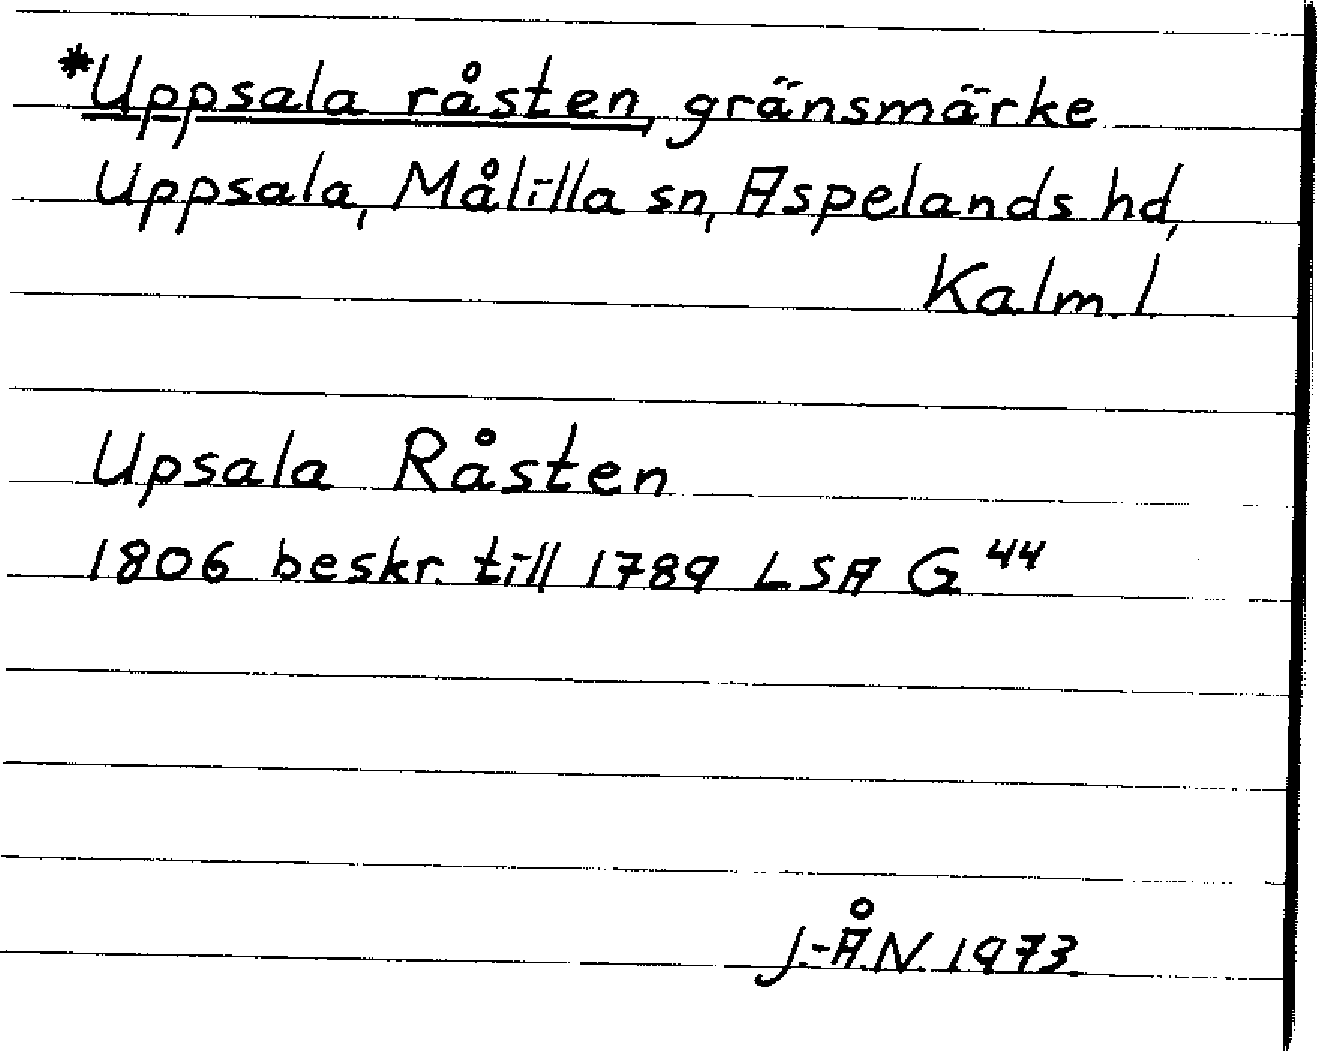 *Uppsala råsten, gränsmärke
Uppsala, Målilla sn, Aspelands hd,
Kalm. l
Upsala Råsten
1806 beskr. till 1789 LSA G 44
J.-Å.N. 1973.